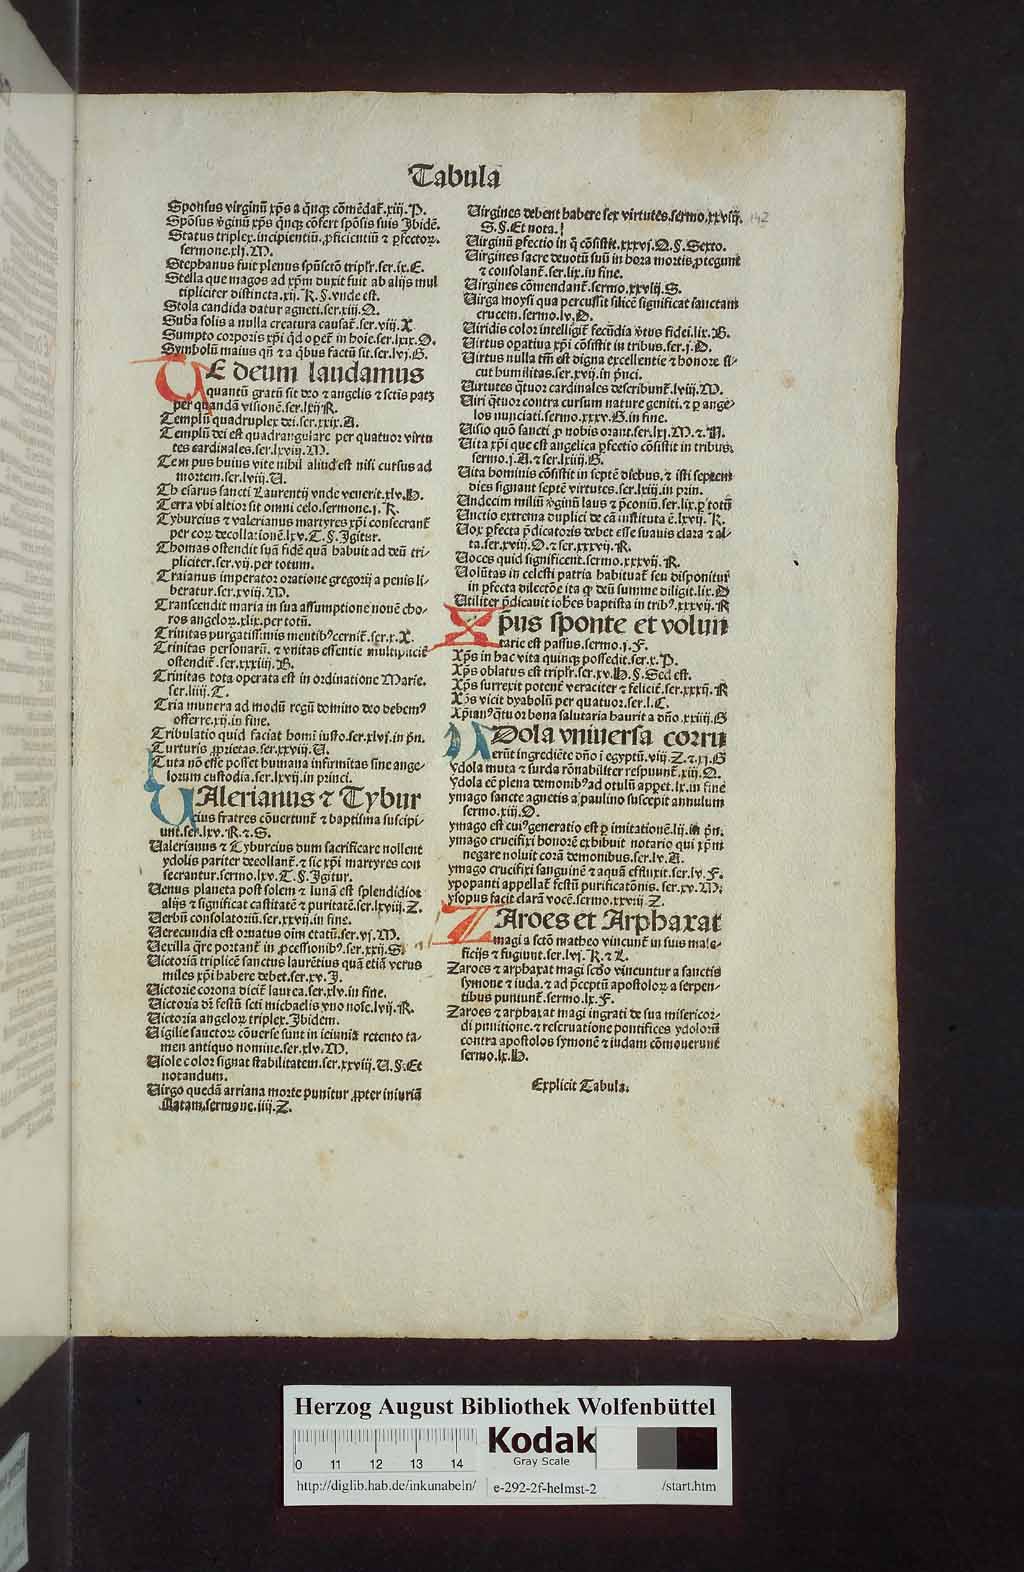 Tabula
Sponsus virginū xp̄s a q̄nq; cōmēdat̄.xiij.P.
Spōsus v̄ginū xp̄s q̄nq; cōfert spōsis suis Ibidē.
Status triplex.incipientiū.ꝓficientiū ⁊ ꝑfectoꝝ.
sermone.xlj.M.
Stephanus fuit plenus spūsctō tripl'r.ser.ix.E.
Stella que magos ad xp̄m duxit fuit ab alijs mul
tipliciter distincta.xij.R.§.vnde est.
Stola candida datur agneti.ser.xiij.O.
Suba solis a nulla creatura causat̄.ser.viij.X
Sumpto corporis xp̄i q̄d oꝑet̄ in hoīe.ser.lxix.O.
Symbolū maius qn̄ ⁊ a q̄bus factū sit.ser.lvj.G.
TE deum laudamus
quantū gratū sit deo ⁊ angelis ⁊ sctis patꝫ
per quandā visionē.ser.lxij R.
Templū quadruplex dei.ser.xxix.A.
Templū dei est quadrangulare per quatuor virtu
tes cardinales.ser.lxvij.M.
Tempus huius vite nihil aliud est nisi cursus ad
mortem.ser.lviij.U.
Thesarus sancti Laurentij vnde venerit.xlv.H.
Terra vbi altior sit omni celo.sermone.j.R.
Tyburcius ⁊ valerianus martyres xp̄i consecrant̄
per eoꝝ decollationē.lxv.T.§.Igitur.
Thomas ostendit suā fidē quā habuit ad deū tri-
pliciter.ser.vij.per totum.
Traianus imperator oratione gregorij a penis li-
beratur.ser.xvij.M.
Transcendit maria in sua assumptione nouē cho-
ros angeloꝝ.xlix.per totū.
Trinitas purgatissimis mentib⁹ cernit̄.ser.x.X.
Trinitas personarū.⁊ vnitas essentie multipliciē
ostendit̄.ser.xxxiiij.B.
Trinitas tota operata est in ordinatione Marie.
ser.iiij.T.
Tria munera ad modū regū domino deo debem⁹
offerre.xij.in fine.
Tribulatio quid faciat homī iusto.ser.xlvj.in pn̄.
Turturis ꝓprietas.ser.xxviij.U.
Tuta nō esse posset humana infirmitas sine ange-
lorum custodia.ser.lxvij.in princi.
VAlerianus ⁊ Tybur
cius fratres cōuertunt̄ ⁊ baptisma suscipi-
unt.ser.lxv.R.⁊ S.
Valerianus ⁊ Tyburcius dum sacrificare nollent
ydolis pariter decollant̄.⁊ sic xp̄i martyres con
secrantur.sermo.lxv.T.§.Igitur.
Venus planeta post solem ⁊ lunā est splendidior
alijs ⁊ significat castitatē ⁊ puritatē.ser.lxviij.Z.
Verbū consolatoriū.ser.xxvij.in fine.
Verecundia est ornatus oīm etatū.ser.vj.M.
Vexilla q̄re portant̄ in ꝓcessionib⁹.ser.xxij.S.
Victoriā triplicē sanctus laurētius quā etiā verus
miles xp̄i habere debet.ser.xv.I.
Victorie corona dicit̄ laurea.ser.xlv.in fine.
Victoria dr̄ festū scti michaelis vno noīe.lvij.R.
Victoria angeloꝝ triplex.Ibidem.
Vigilie sanctoꝝ cōuerse sunt in ieiunia retento ta-
men antiquo nomine.ser.xlv.M.
Viole color signat stabilitatem.ser.xxviij.U.§.Et
notandum.
Virgo quedā arriana morte punitur ꝓpter iniuriā
illatam.sermone.iiij.Z.
Virgines debent habere sex virtutes.sermo.xxviij.
S.§.Et nota.
142
Virginū ꝑfectio in q̄ cōsistit.xxxvj.Q.§.Sexto.
Virgines sacre deuotū suū in hora mortis ꝓtegunt
⁊ consolant̄.ser.lix.in fine.
Virgines cōmendant̄.sermo.xxviij.S.
Virga moysi qua percussit silicē significat sanctam
crucem.sermo.lv.O.
Viridis color intelligit̄ fecūdia v̄tus fidei.lix.B.
Virtus oꝑatiua xp̄i cōsistit in tribus.ser.j.O.
Virtus nulla tm̄ est digna excellentie ⁊ honore si-
cut humilitas.ser.xvij.in pnci.
Virtutes q̄tuor cardinales describunt̄.lviij.M.
Viri q̄tuor contra cursum nature geniti.⁊ ꝑ ange-
los nunciati.sermo.xxxv.B.in fine.
Visio quō sancti ꝓ nobis orant.ser.lxj.M.⁊.N.
Vita xp̄i que est angelica ꝑfectio cōsistit in tribus.
sermo.j.A.⁊ ser.lxiiij.G.
Vita hominis cōsistit in septē diebus.⁊ isti septem
dies signant septē virtutes.ser.lxiij.in prin.
Vndecim miliū v̄ginū laus ⁊ p̄coniū.ser.lix.ꝑ totū
Vnctio extrema duplici de cā instituta ē.lxvij.R.
Vox ꝑfecta p̄dicatoris debet esse suauis clara ⁊ al-
ta.ser.xviij.O.⁊ ser.xxxvij.R.
Voces quid significent.sermo.xxxvij.R.
Volūtas in celesti patria habituat̄ seu disponitur
in ꝑfecta dilectōe ita ꝙ deū summe diligit.lix.O
Vtiliter p̄dicauit ioh̄es baptista in trib⁹.xxxvij.R
Xpus sponte et volun
tarie est passus.sermo.j.F.
Xp̄s in hac vita quinq; possedit.ser.x.P.
Xp̄s oblatus est tripl'r.ser.xv.H.§.Sed est.
Xp̄s surrexit potent̄ veraciter ⁊ felicit̄.ser.xxxij.R
Xp̄s vicit dyabolū per quatuor.ser.l.C.
Xp̄ian⁹ q̄tuor bona salutaria haurit a dn̄o.xxiiij.G
YDola vniuersa corru
erūt ingrediēte dn̄o ī egyptū.viij.Z.⁊.xj.G
Ydola muta ⁊ surda rōnabiliter respuunt̄.xiij.Q.
Ydola eē plena demonib⁹ ad otulū apꝑet.lx.in fine
ymago sancte agnetis a paulino suscepit annulum
sermo.xiij.O.
ymago est cui⁹ generatio est ꝑ imitationē.lij.in pn̄.
ymago crucifixi honorē exhibuit notario qui xp̄m
negare noluit corā demonibus.ser.lv.A.
ymago crucifixi sanguinē ⁊ aquā effluxit.ser.lv.F.
ypopanti appellat̄ festū purificatōnis.ser.xv.M.
ysopus facit clarā vocē.sermo.xxviij.Z.
ZAroes et Arphaxat
magi a sctō matheo vincunt̄ in suis male-
ficijs ⁊ fugiunt.ser.lvj.R.⁊ L.
Zaroes ⁊ arphaxat magi scd̄o vincuntur a sanctis
symone ⁊ iuda.⁊ ad p̄ceptū apostoloꝝ a serpen-
tibus puniunt̄.sermo.lx.F.
Zaroes ⁊ arphaxat magi ingrati de sua misericor-
di punitione.⁊ reseruatione pontifices ydolorū
contra apostolos symonē ⁊ iudam cōmouerunt
sermo.lx.H.
Explicit Tabula.
Herzog August Bibliothek Wolfenbüttel
0 11 12 13 14
Kodak
Gray Scale
http://diglib.hab.de/inkunabeln/ e-292-2f-helmst-2 /start.htm